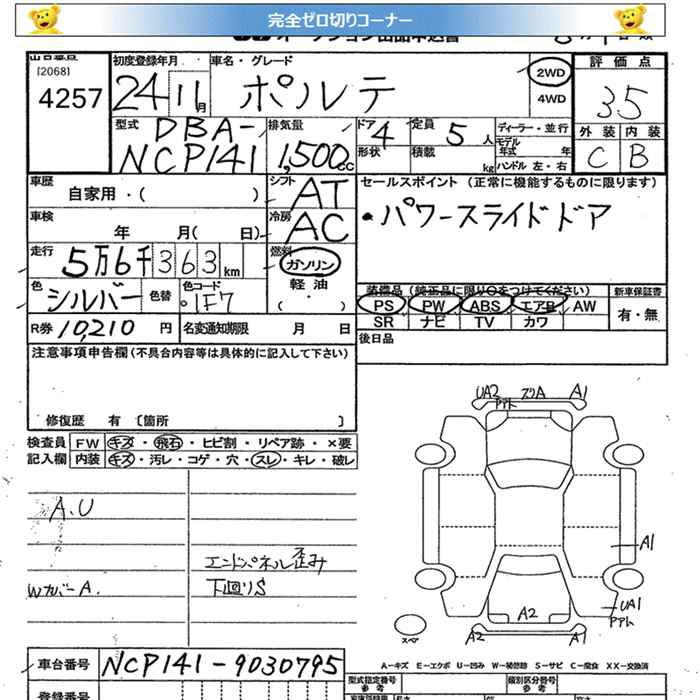 完全ゼロ切りコーナー
[2068]
4257
初度登録年月
24 11月
車名・グレード
ポルテ
2WD
4WD
評価点
3.5
外装 内装
C B
型式
DBA-
NCP141
排気量
1,500cc
ドア 4
形状
定員 5人
積載 kg
ディーラー・並行
モデル年式 年
ハンドル 左・右
車歴
自家用・( )
シフト
AT
セールスポイント (正常に機能するものに限ります)
・パワースライドドア
車検
年 月( 日)
冷房
AC
走行
5万6千363km
燃料
ガソリン
軽油
・( )
色
シルバー
色替
色コード
1F7
装備品(純正品に限り○をつけてください)
PS PW ABS エアB AW
SR ナビ TV カワ
新車保証書
有・無
R券 10,210 円
名変通知期限 月 日
後日品
注意事項申告欄(不具合内容等は具体的に記入して下さい)
修復歴 有 〔箇所 〕
検査員
記入欄
FW キズ・飛石・ヒビ割・リペア跡・×要
内装 キズ・汚レ・コゲ・穴・スレ・キレ・破レ
A.U
Wカバー A.
エンドパネル歪み
下回りS
UA2 ズリA A1
Pアト
A1
UA1
Pアト
A2
A2 A1
スペア
A−キズ E−エクボ U−凹み W−補修跡 S−サビ C−腐食 XX−交換済
車台番号 NCP141-9030795
登録番号
型式指定番号
参考
類別区分番号
参考